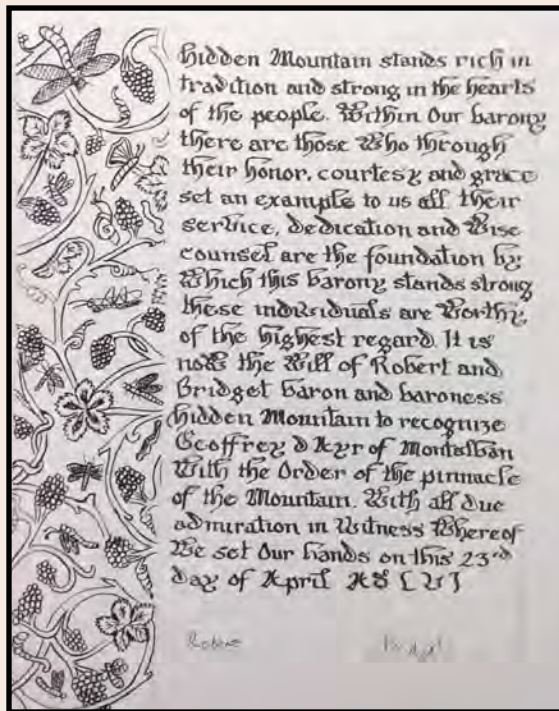 hidden Mountain stands rich in
tradition and strong in the hearts
of the people. Within Our barony
there are those Who through
their honor, courtesy and grace
set an example to us all. their
service, dedication and Wise
counsel are the foundation by
Which this barony stands strong
these individuals are Worthy
of the highest regard. It is
noW the Will of Robert and
Bridget baron and baroness
hidden Mountain to recognize
Geoffrey d Ayr of Montalban
With the Order of the pinnacle
of the Mountain. With all due
admiration in Witness Whereof
We set Our hands on this 23rd
day of April AS
Robert
Bridget